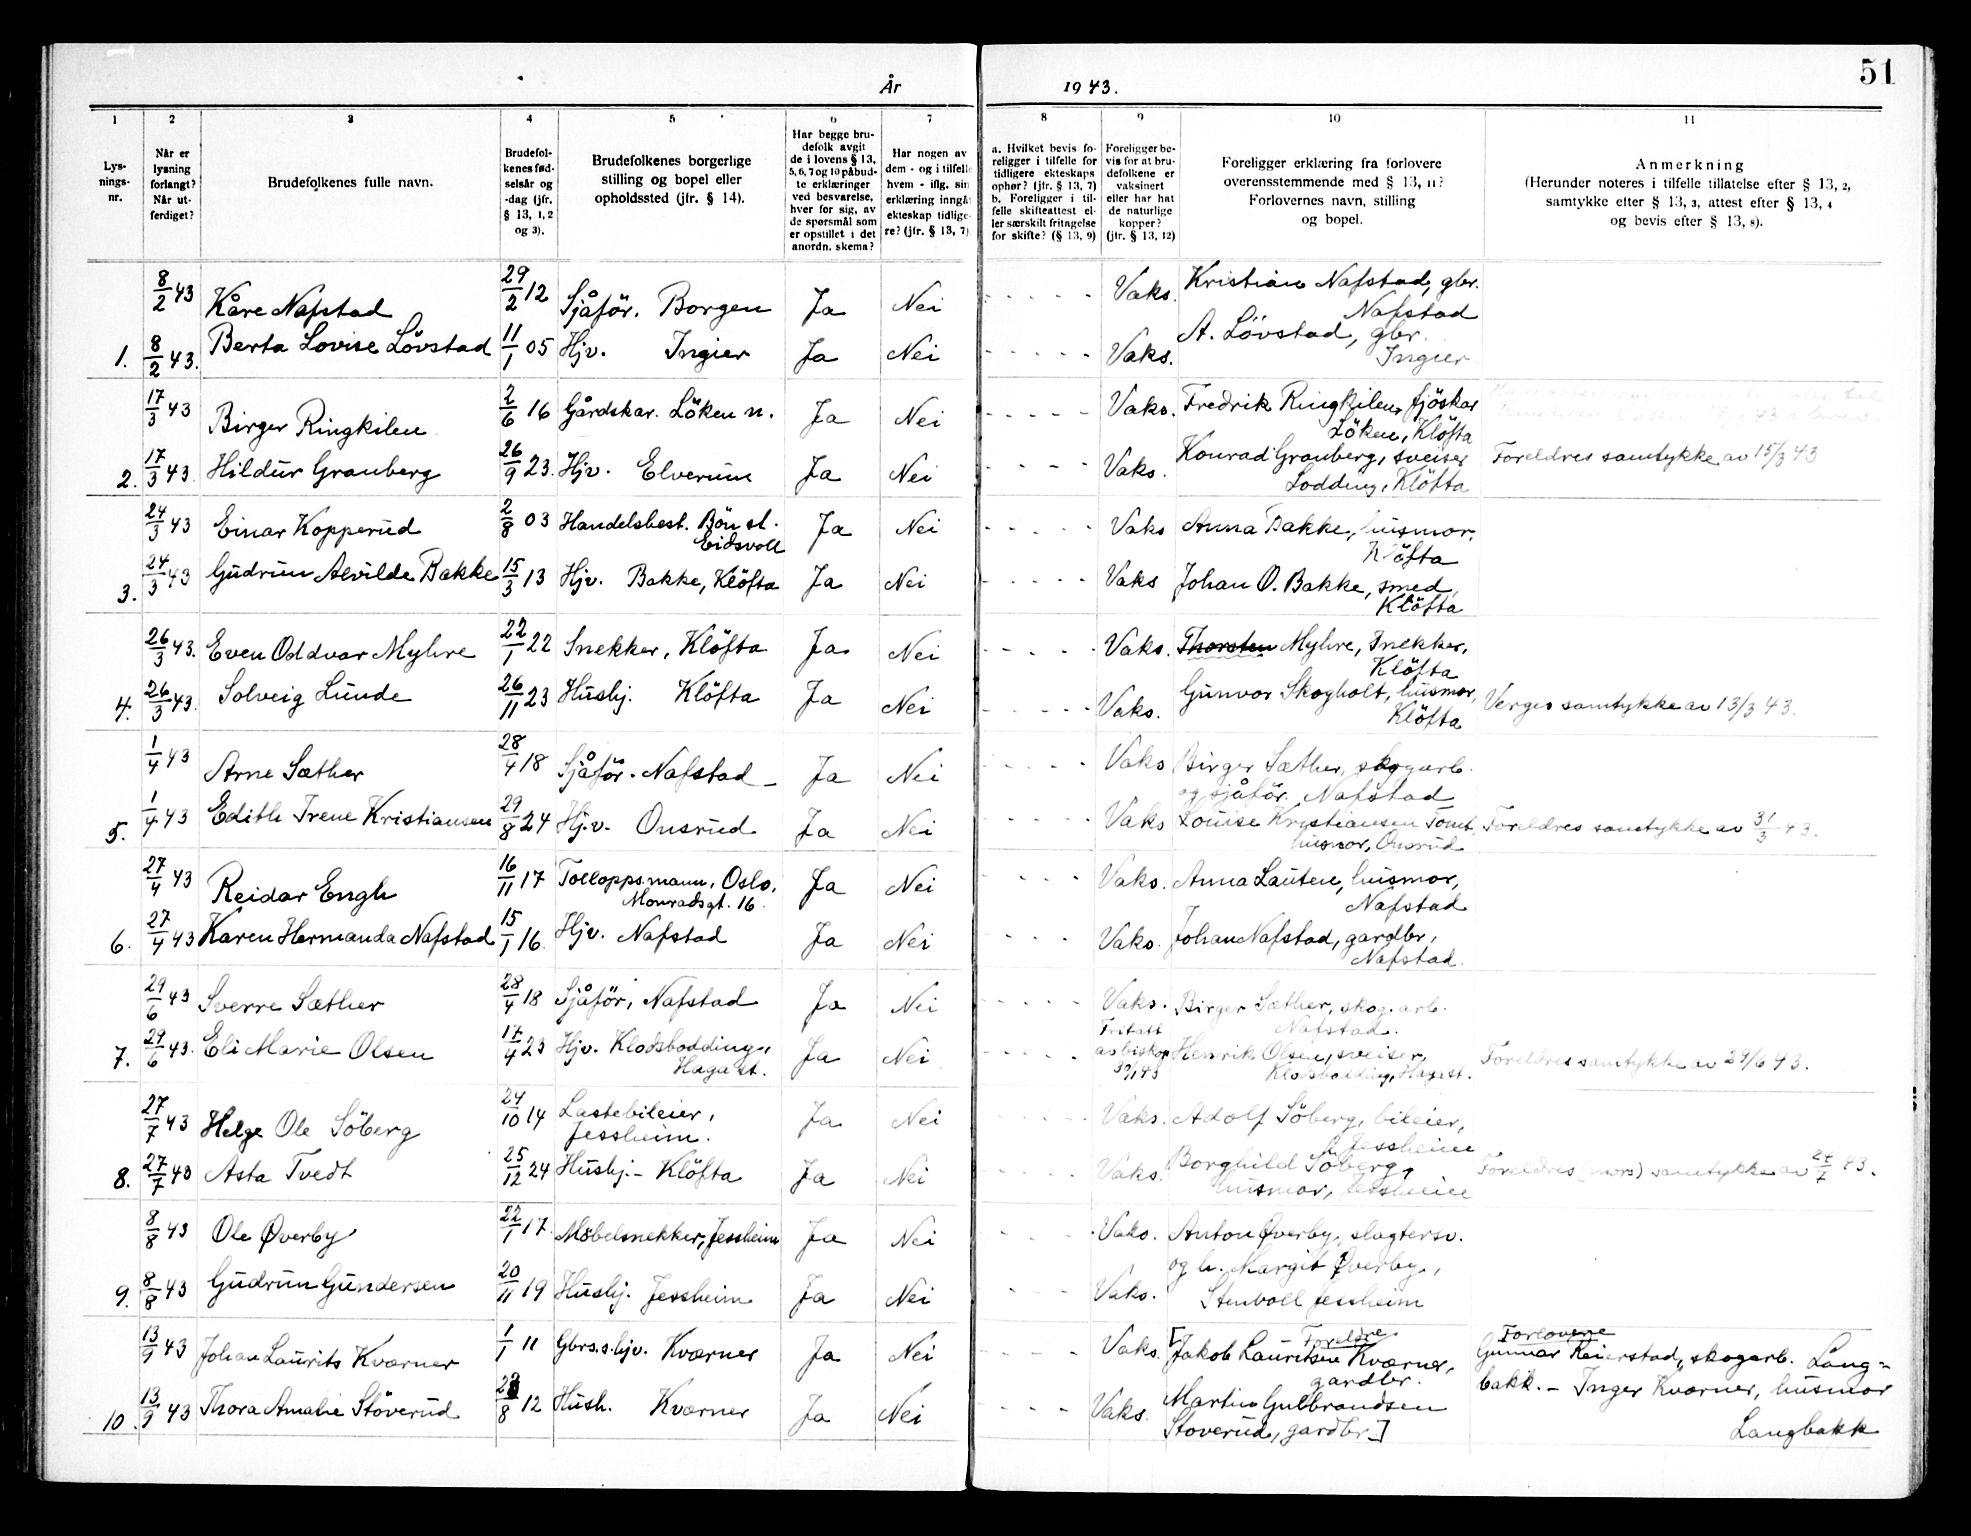 51
År 1943.
1 2 3 4 5 6 7 8 9 10 11
Lys-
nings-
nr.
Når er
lysning
forlangt?
Når ut-
ferdiget?
Brudefolkenes fulle navn.
Brudefol-
kenes fød-
selsår og
-dag (jfr.
§ 13, 1, 2
og 3).
Brudefolkenes borgerlige
stilling og bopel eller
opholdssted (jfr. § 14).
Har begge bru-
defolk avgit
de i lovens § 13,
5, 6, 7 og 10 påbud-
te erklæringer
ved besvarelse,
hver for sig, av
de spørsmål som
er opstillet i det
anordn. skema?
Har nogen av
dem - og i tilfelle
hvem - iflg. sin
erklæring inngå
ekteskap tidlige-
re? (jfr. § 13, 7)
a. Hvilket bevis fo-
religger i tilfelle for
tidligere ekteskaps
ophør? (jfr. § 13, 7)
b. Foreligger i til-
felle skifteattest el-
ler særskilt fritagelse
for skifte? (§ 13, 9)
Foreligger be-
vis for at bru-
defolkene er
vaksinert
eller har hat
de naturlige
kopper?
(jfr. § 13, 12)
Foreligger erklæring fra forlovere
overensstemmende med § 13, 11?
Forlovernes navn, stilling
og bopel.
Anmerkning
(Herunder noteres i tilfelle tillatelse efter § 13, 2,
samtykke efter § 13, 3, attest efter § 13, 4
og bevis efter § 13, 8).
8/2 43 Kåre Nafstad 29/2 12 Sjåför. Borgen Ja Nei - - - - - Vaks. Kristian Nafstad, gbr.
Nafstad
1. 8/2 43. Berta Lovise Lövstad 11/1 05 Hjv. Ingier Ja Nei - - - - - Vaks. A. Lövstad, gbr.
Ingier
17/3 43 Birger Ringkilen 2/6 16 Gårdskar. Löken n. Ja Nei - - - - - Vaks. Fredrik Ringkilen, fjöskar
Löken, Klöfta
2. 17/3 43. Hildur Granberg 26/9 23. Hjv. Elverum Ja Nei - - - - Vaks. Konrad Granberg, sveiser Foreldres samtykke av 15/3 43
Lodding, Klöfta
24/3 43 Einar Kopperud 2/8 03 Handelsbest. Bön st. Ja Nei - - - - Vaks Anna Bakke, husmor.
Eidsvoll Klöfta
3. 24/3 43 Gudrun Alvilde Bakke 15/3 13 Hjv. Bakke, Klöfta Ja Nei - - - - - Vaks Johan O. Bakke, smed,
Klöfta
26/3 43. Even Oddvar Myhre 22/1 22 Snekker, Klöfta Ja Nei - - - - Vaks. Thorsten Myhre, Snekker,
Klöfta
4. 26/3 43. Solveig Lunde 26/11 23 Hushj. Klöfta Ja Nei - - - - - Vaks. Gunvor Skogholt, husmor, Verges samtykke av 13/3 43.
Klöfta
1/4 43 Arne Sæther 28/4 18 Sjåför. Nafstad - Ja Nei - - - - Vaks Birger Sæther, skogarb.
og sjåför. Nafstad
5. 1/4 43 Edith Irene Kristiansen 29/8 24 Hj.v. Onsrud Ja Nei - - - - - Vaks Louise Kristiansen Foreldres samtykke av 31/3 43.
husmor, Onsrud
27/4 43 Reidar Engh 16/11 17 Tolloppsmann, Oslo, Ja Nei - - - - Vaks. Anna Lauten, husmor,
Monradsgt. 16. Nafstad
6. 27/4 43 Karen Hermanda Nafstad 15/1 16. Hjv. Nafstad Ja Nei - - - - Vaks. Johan Nafstad, gardbr,
Nafstad.
29/6 43 Sverre Sæther 28/4 18 Sjåför, Nafstad Ja Nei - - - - - Vaks. Birger Sæther, skog.arb.
Nafstad.
7. 29/6 43. Eli Marie Olsen 17/4 23 Hjv. Klodsbodding, Ja Nei - - - - - Fritatt av biskop Henrik Olsen, sveiser, Foreldres samtykke av 29/6 43.
Haga st. Klodsbodding, Haga st.
27/7 43 Helge Ole Söberg 24/10 14 Lastebileier, Ja Nei - - - - Vaks. Adolf Söberg, bileier,
Jessheim. Jessheim
8. 27/7 43 Asta Tvedt 25/12 24 Hushj. - Klöfta Ja Nei - - - - Vaks. Borghild Söberg, Foreldres (mors) samtykke av 24/7 43.
husmor, Jessheim
8/8 43 Ole Øverby 22/1 17. Möbelsnekker, Jessheim Ja Nei - - - - Vaks. Anton Øverby, slagtersv.
og h. Margit Øverby,
9. 8/8 43 Gudrun Gundersen 20/11 19 Hushj. Jessheim Ja Nei - - - Vaks. Stenvoll Jessheim
Foreldre Forlovere
13/9 43 Johan Laurits Kværner 1/1 11 Gbrs.s. hjv. Kværner Ja Nei - - - - Vaks. [Jakob Lauritsen Kværner, Gunnar Reierstad, skogarb. Lang-
gardbr. bakk. - Inger Kværner, husmor
10. 13/9 43 Thora Amalie Stöverud 8 12 Hush. Kværner Ja Nei - - - - Vaks. Martin Gulbrandsen
Stoverud, gardbr.] Langbakk